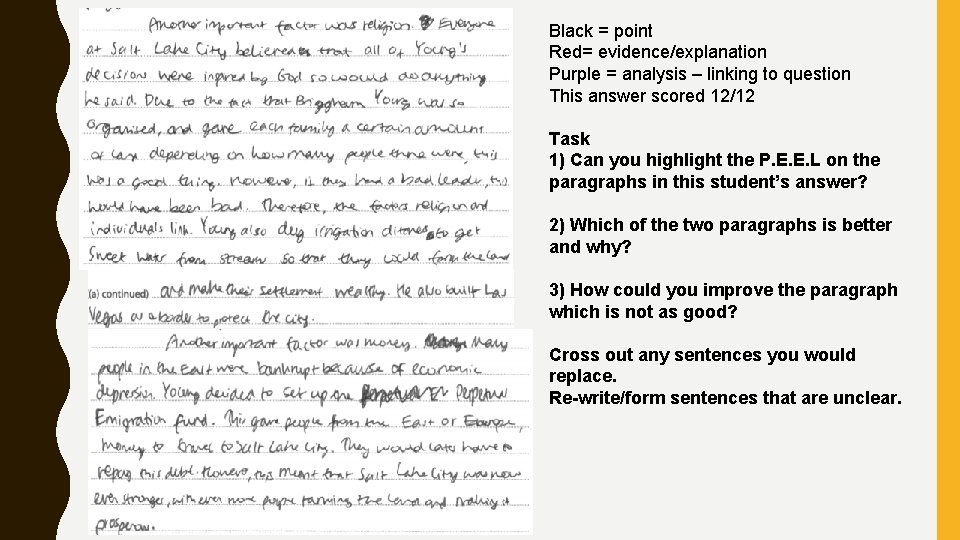 Another important factor was religion. Everyone
at Salt Lake City believered that all of Young's
decisions were inpired by God so would do anything
he said. Due to the fact that Briggham Young was so
organised, and gave each family a certain amount
of land depending on how many people there were, this
was a good thing. However, if they had a bad leader, this
would have been bad. Therefore, the factors religion and
individuals link. Young also dug irrigation ditches to get
sweet water from stream so that they would farm the land
(a) continued) and make their settlement wealthy. He also built Las
Vegas as a border to protect the city.
Another important factor was money. Many
people in the East were bankrupt because of economic
depression. Young decided to set up the Perpetual
Emigration Fund. This gave people from the East or Europe,
money to travel to Salt Lake City. They would later have to
repay this debt. However, this meant that Salt Lake City was now
even stronger, with even more people farming the land and making it
prosperous.
Black = point
Red= evidence/explanation
Purple = analysis – linking to question
This answer scored 12/12
Task
1) Can you highlight the P.E.E.L on the
paragraphs in this student's answer?
2) Which of the two paragraphs is better
and why?
3) How could you improve the paragraph
which is not as good?
Cross out any sentences you would
replace.
Re-write/form sentences that are unclear.